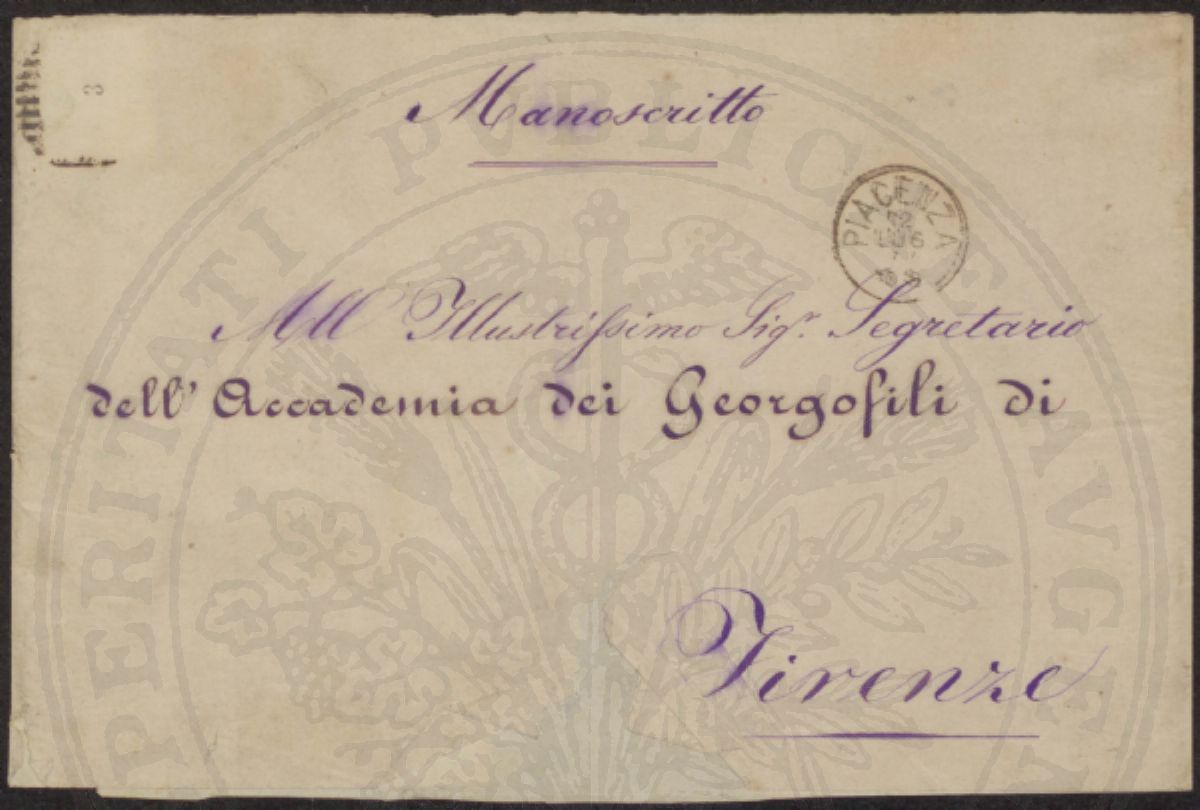 Manoscritto
PIACENZA
12
LUG
All' Illustrissimo Sigr. Segretario
dell' Accademia dei Georgofili di
Firenze
PROSPERITATI PUBLICAE AVGEN